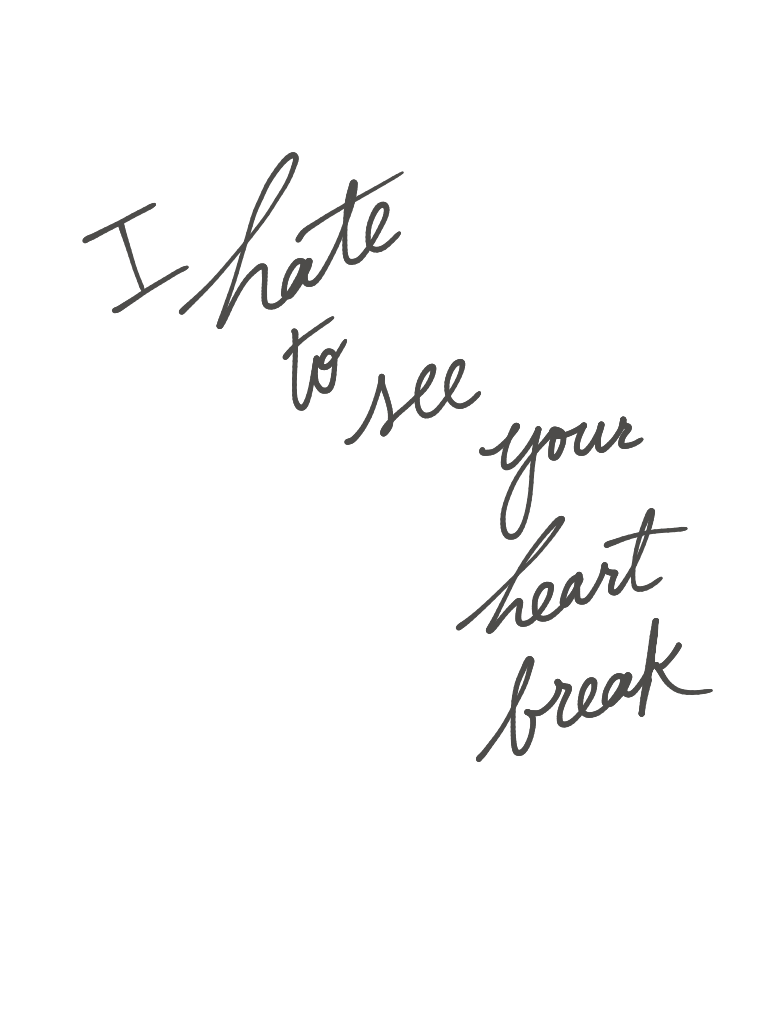 I hate
to see
your
heart
break